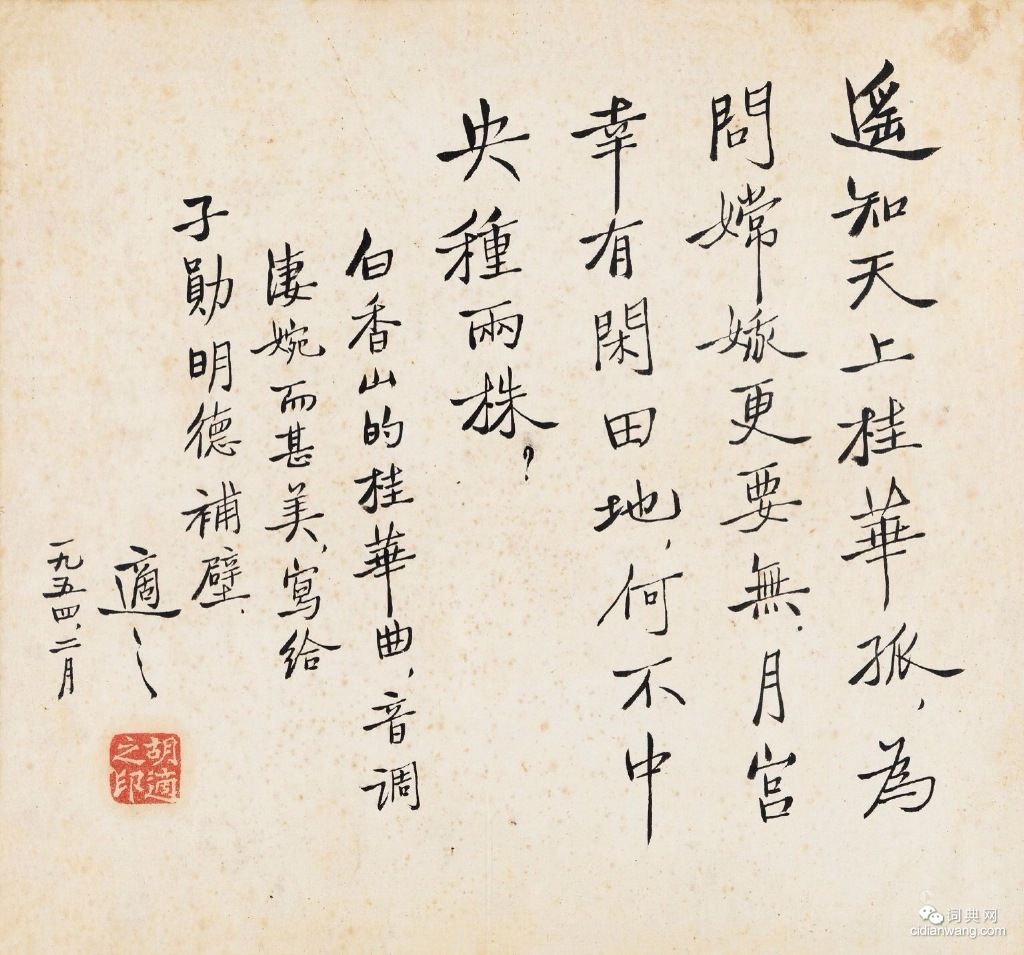 遙知天上桂華孤，為
問嫦娥更要無．月宮
幸有閑田地，何不中
央種兩株？
白香山的桂華曲，音調
淒婉而甚美，寫給
子勛明德補壁．
適之
一九五四，二月
胡適
之印
词典网
cidianwang.com